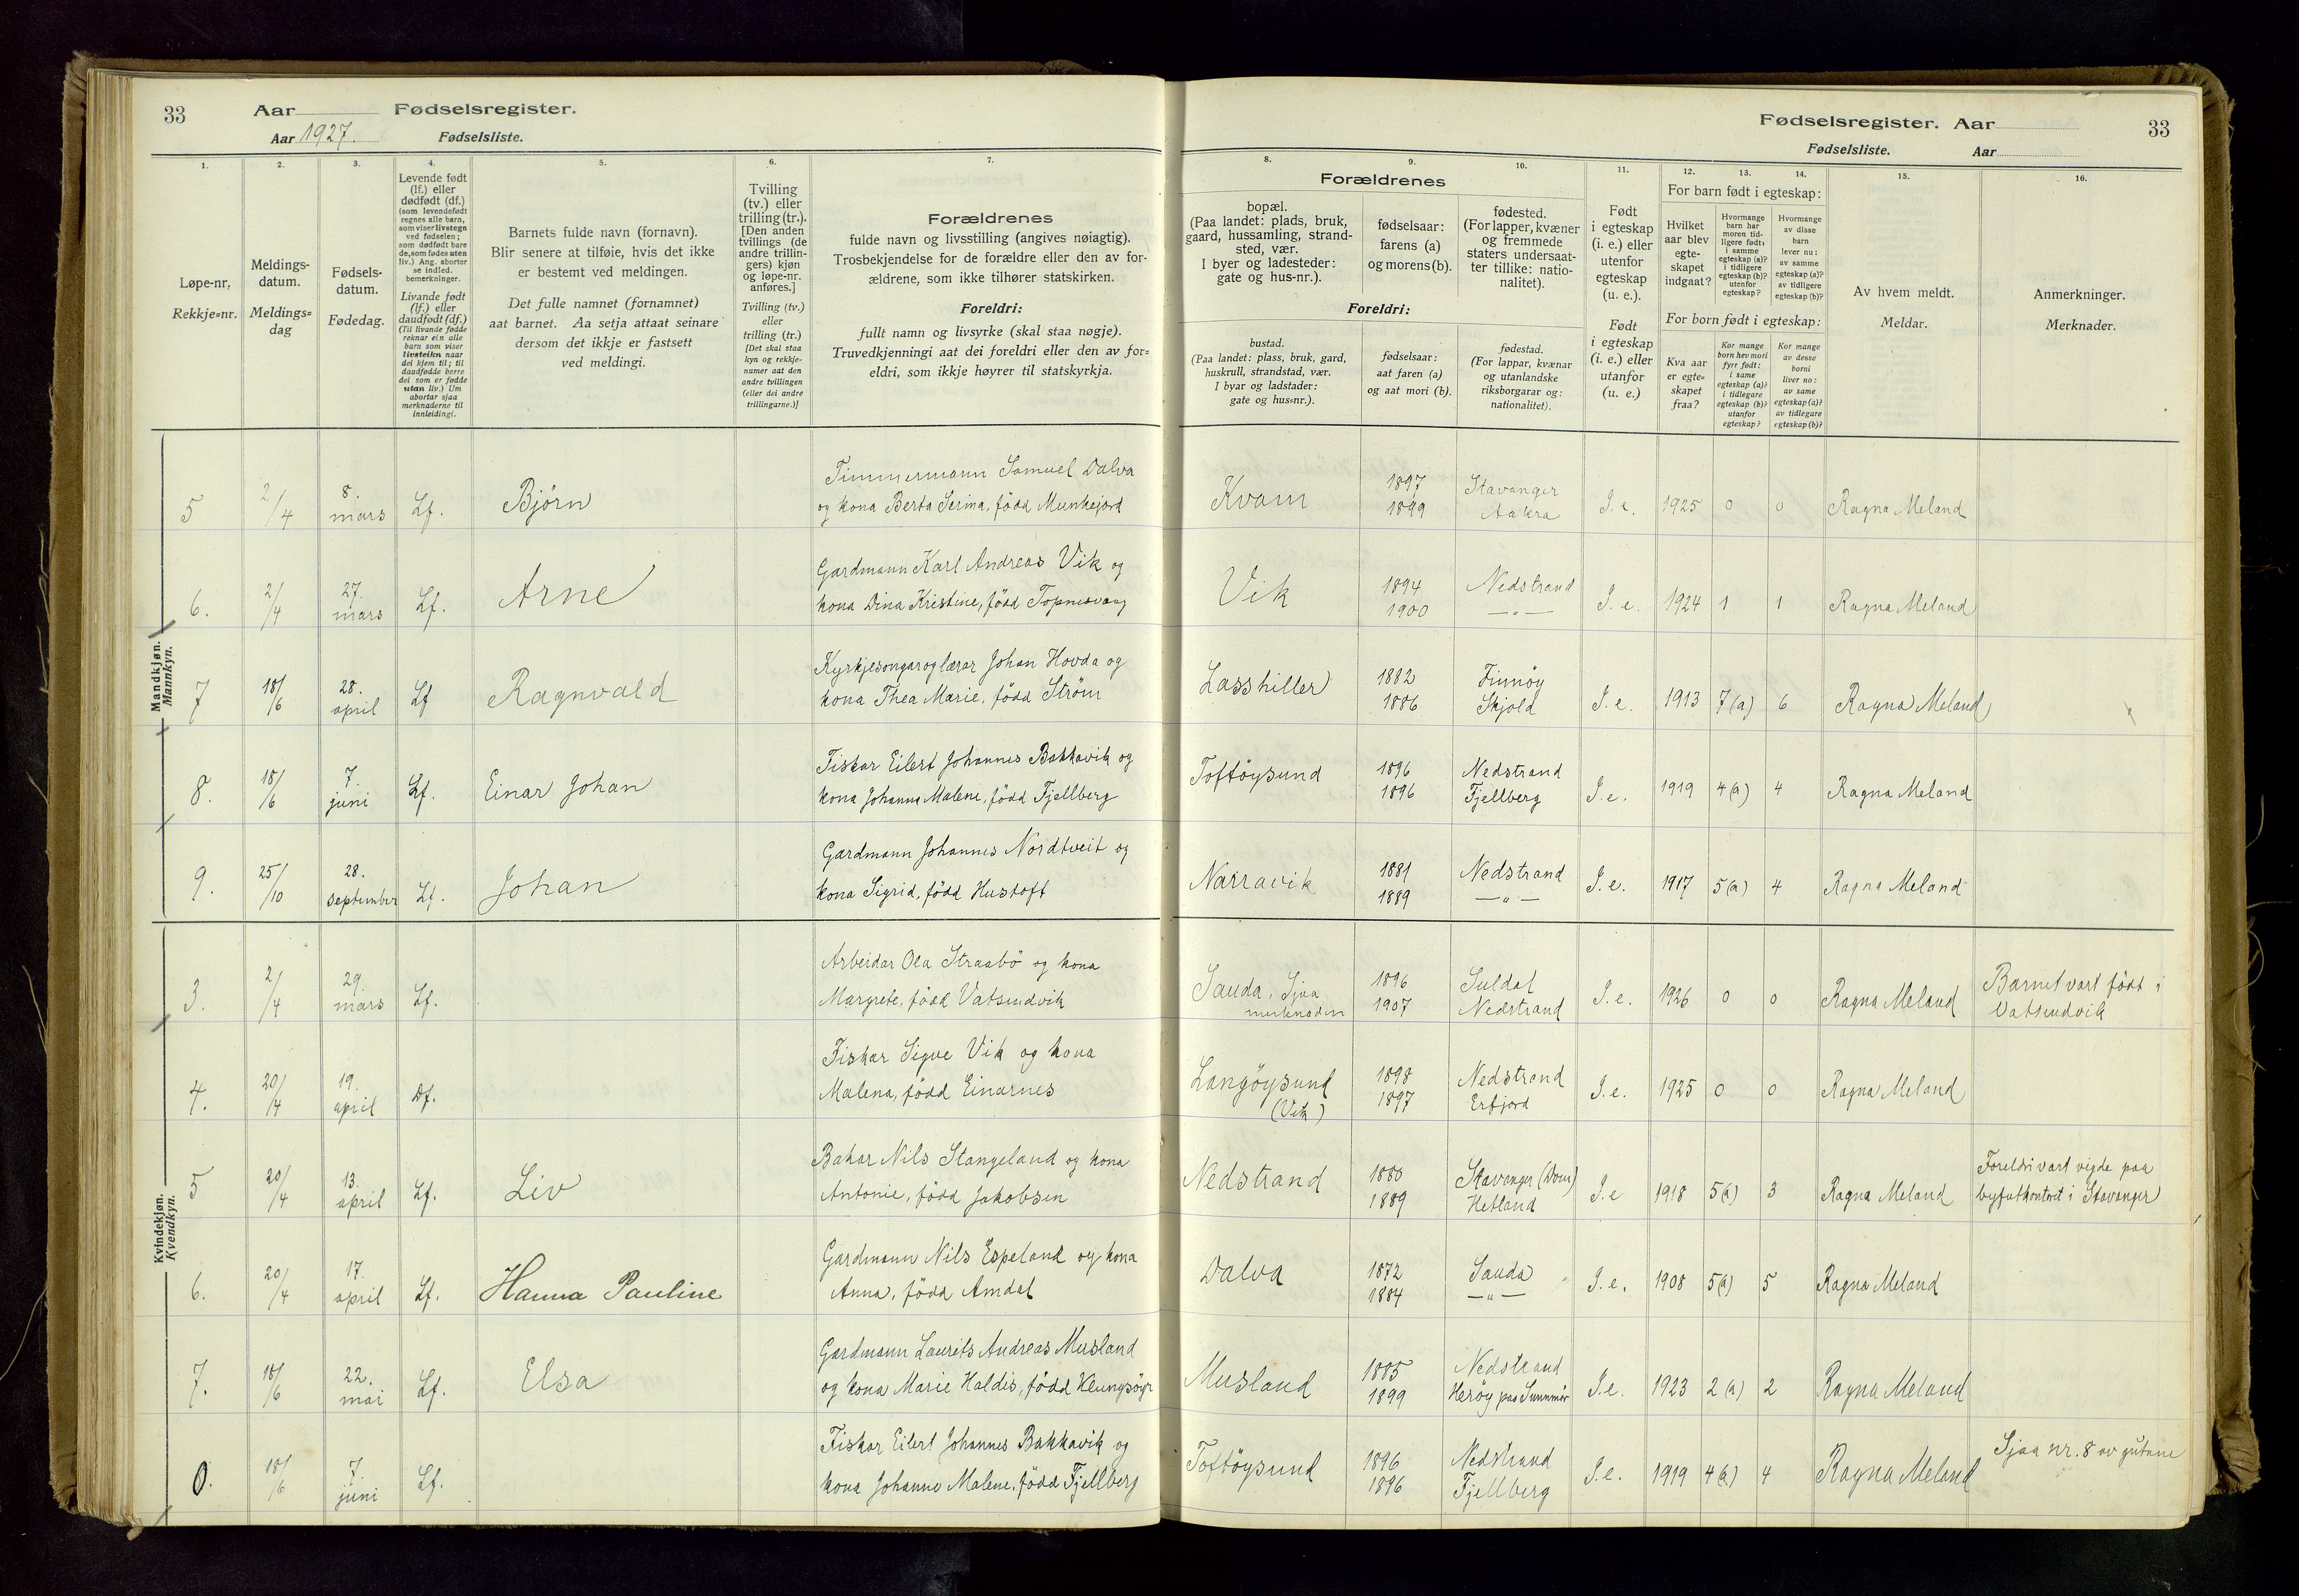 33 Aar Fødselsregister.
Aar 1927. Fødselsliste.
Fødselsregister. Aar 33
Fødselsliste. Aar
1. 2. 3. 4. 5. 6. 7. 8. 9. 10. 11. 12. 13. 14. 15. 16.
Løpe-nr.
Rekkje=nr.
Meldings-
datum.
Meldings=
dag
Fødsels-
datum.
Fødedag.
Levende født
(lf.) eller
dødfødt (df.)
(som levendefødt
regnes alle barn,
som viser livstegn
ved fødselen;
som dødfødt bare
de, som fødes uten
liv.) Ang. aborter
se indled.
bemerkninger.
Livande født
(lf.) eller
daudfødt (df.)
(Til livande fødde
reknar ein alle
barn som viser
livsteikn naar
dei kjem til; til
daudfødde berre
dei som er fødde
utan liv.) Um
abortar sjaa
merknaderne til
innleidingi.
Barnets fulde navn (fornavn).
Blir senere at tilføie, hvis det ikke
er bestemt ved meldingen.
Det fulle namnet (fornamnet)
aat barnet. Aa setja attaat seinare
dersom det ikkje er fastsett
ved meldingi.
Tvilling
(tv.) eller
trilling (tr.).
[Den anden
tvillings (de
andre trillin-
gers) kjøn
og løpe-nr.
anføres.]
Tvilling (tv.)
eller
trilling (tr.)
[Det skal staa
kyn og rekkje-
numer aat den
andre tvillingen
(eller dei andre
trillingarne.)]
Forældrenes
fulde navn og livsstilling (angives nøiagtig).
Trosbekjendelse for de forældre eller den av for-
ældrene, som ikke tilhører statskirken.
Foreldri:
fullt namn og livsyrke (skal staa nøgje).
Truvedkjenningi aat dei foreldri eller den av for=
eldri, som ikkje høyrer til statskyrkja.
Forældrenes
bopæl.
(Paa landet: plads, bruk,
gaard, hussamling, strand-
sted, vær.
I byer og ladesteder:
gate og hus-nr.).
fødselsaar:
farens (a)
og morens (b).
fødested.
(For lapper, kvæner
og fremmede
staters undersaat-
ter tillike: natio-
nalitet).
Foreldri:
bustad.
(Paa landet: plass, bruk, gard,
huskrull, strandstad, vær.
I byar og ladstader:
gate og hus=nr.).
fødselsaar:
aat faren (a)
og aat mori (b).
fødestad.
(For lappar, kvænar
og utanlandske
riksborgarar og:
nationalitet).
Født
i egteskap
(i. e.) eller
utenfor
egteskap
(u. e.).
Født
i egteskap
(i. e.) eller
utanfor
(u. e.)
For barn født i egteskap:
Hvilket
aar blev
egte-
skapet
indgaat?
Hvormange
barn har
moren tid-
ligere født:
i samme
egteskap (a)?
i tidligere
egteskap (b)?
utenfor
egteskap?
Hvormange
av disse
barn
lever nu:
av samme
egteskap (a)?
av tidligere
egteskap (b)?
For born født i egteskap:
Kva aar
er egte=
skapet
fraa?
Kor mange
born hev mori
fyrr født:
i same
egteskap (a)?
i tidlegare
egteskap (b)?
utanfor
egteskap?
Kor mange
av desse
borni
liver no:
av same
egteskap (a)?
av tidlegare
egteskap (b)?
Av hvem meldt.
Meldar.
Anmerkninger.
Merknader.
Mandkjøn.
Mannkyn.
5 2/4 8. mars Lf. Björn Timmermann Samuel Dalva
og kona Berta Serina, född Munkejord Kvam 1897 1899 Stavanger Aakra I. e. 1925 0 0 Ragna Meland
6. 2/4 27. mars Lf. Arne Gardmann Karl Andreas Vik og
kona Dina Kristine, född Topnesvaag Vik 1894 1900 Nedstrand —"— I. e. 1924 1 1 Ragna Meland
7 18/6 28. april Lf Ragnvald Kyrkjesongar og lærar Johan Hovda og
kona Thea Marie, född Ström Lasshiller 1882 1886 Finnöy Skjold I. e. 1913 7 (a) 6 Ragna Meland
8. 18/6 7. juni Lf. Einar Johan Fiskar Eilert Johannes Bakkavik og
kona Johanna Malene, född Fjellberg Toftöysund 1896 1896 Nedstrand Fjellberg I. e. 1919 4 (a) 4 Ragna Meland
9. 25/10 28. september Lf. Johan Gardmann Johannes Nordtveit og
kona Sigrid, född Hustoft Narravik 1881 1889 Nedstrand —"— I. e. 1917 5 (a) 4 Ragna Meland
Kvindekjøn.
Kvendkyn.
3. 2/4 29. mars Lf. Arbeidar Ola Straabö og kona
Margrete, född Vatsendvik Sauda, Sjaa merknaden 1896 1907 Suldal Nedstrand I. e. 1926 0 0 Ragna Meland Barnet vart födt i
Vatsendvik
4. 20/4 19. april Df. Fiskar Sigve Vik og kona
Malena, född Einarnes Langöysund (Vik) 1898 1897 Nedstrand Erfjord I. e. 1925 0 0 Ragna Meland
5 20/4 13. april Lf. Liv Bakar Nils Stangeland og kona
Antonie, född Jakobsen Nedstrand 1880 1889 Stavanger (Dom) Hetland I. e 1918 5 (a) 3 Ragna Meland Foreldri vart vigde paa
byfutkontoret i Stavanger
6. 20/4 17. april Lf. Hanna Pauline Gardmann Nils Espeland og kona
Anna, född Amdal Dalva 1872 1884 Sauda —"— I. e. 1908 5 (a) 5 Ragna Meland
7. 18/6 22. mai Lf. Elsa Gardmann Laurits Andreas Musland
og kona Marie Haldis, född Klungsöyr Musland 1885 1899 Nedstrand Heröy paa Sunnmör I. e. 1923 2 (a) 2 Ragna Meland
0. 18/6 7. juni Lf. Fiskar Eilert Johannes Bakkavik og
kona Johanne Malene, född Fjellberg Toftöysund 1896 1896 Nedstrand Fjellberg I. e. 1919 4 (a) 4 Ragna Meland Sjaa nr. 8 av gutane